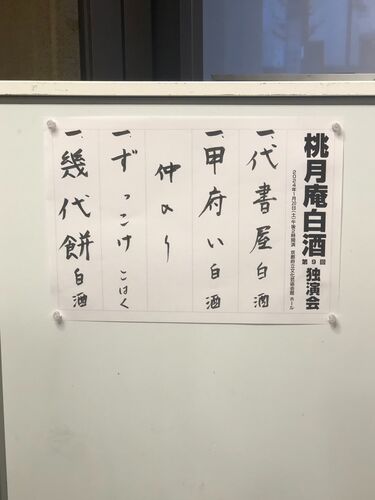 桃月庵白酒 第9回 独演会
2024年1月20日(土)午後2時開演 京都府立文化芸術会館 ホール
一、代書屋 白酒
一、甲府い 白酒
仲入り
一、ずっこけ こはく
一、幾代餅 白酒